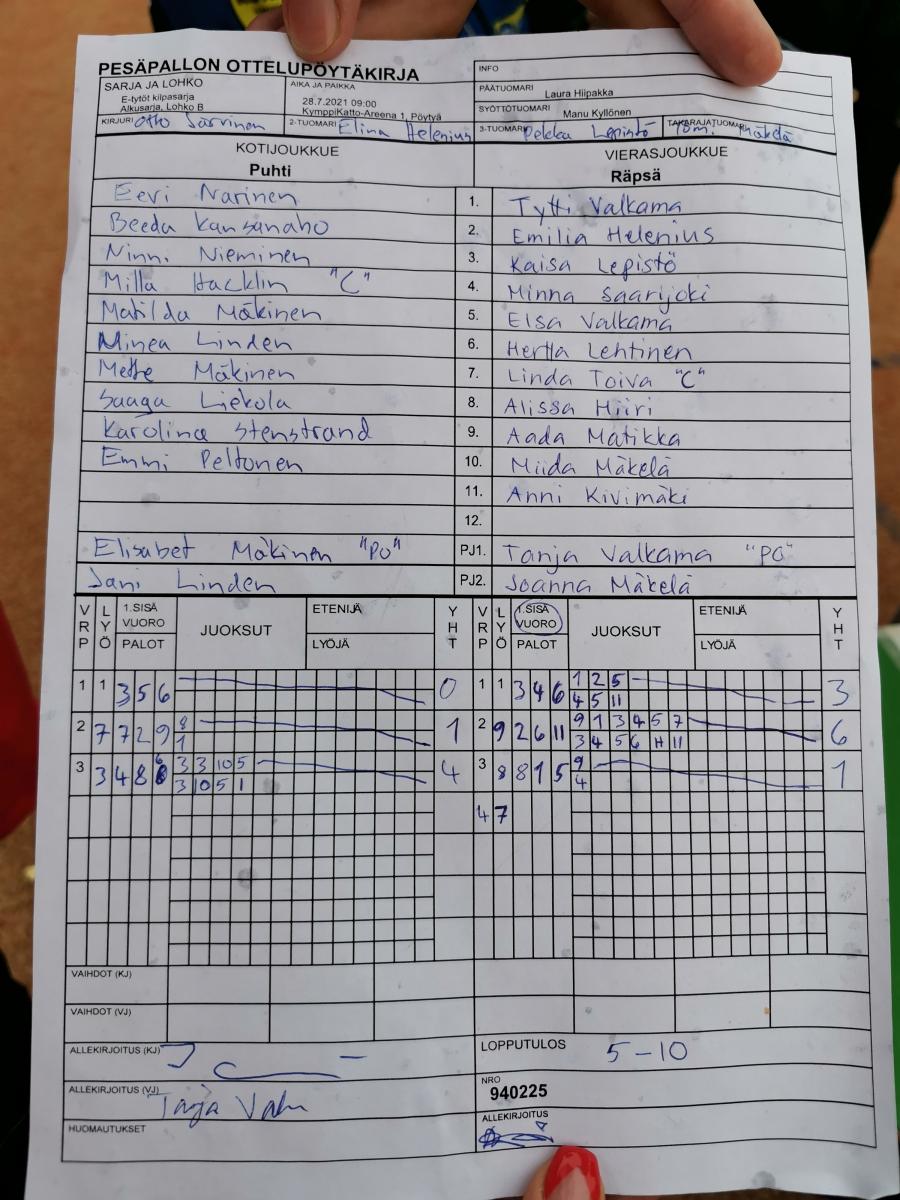 PESÄPALLON OTTELUPÖYTÄKIRJA
INFO
SARJA JA LOHKO
E-tytöt kilpasarja
Alkusarja, Lohko B
AIKA JA PAIKKA
28.7.2021 09:00
KymppiKatto-Areena 1, Pöytyä
PÄÄTUOMARI Laura Hiipakka
SYÖTTÖTUOMARI Manu Kyllönen
KIRJURI Otto Särvinen
2-TUOMARI Elina Helenius
3-TUOMARI Pekka Lepistö
TAKARAJATUOMARI Mäkelä
KOTIJOUKKUE
Puhti
VIERASJOUKKUE
Räpsä
Eevi Narinen 1. Tytti Valkama
Beeda Kansanaho 2. Emilia Helenius
Ninni Nieminen 3. Kaisa Lepistö
Milla Hacklin "C" 4. Minna Saarijoki
Matilda Mäkinen 5. Elsa Valkama
Minea Linden 6. Hertta Lehtinen
Mette Mäkinen 7. Linda Toiva "C"
Saaga Liekola 8. Alissa Hiiri
Karolina Stenstrand 9. Aada Matikka
Emmi Peltonen 10. Miida Mäkelä
11. Anni Kivimäki
12.
Elisabet Mäkinen "PO" PJ1. Tanja Valkama "PO"
Jani Linden PJ2. Joanna Mäkelä
VRP LYÖ 1.SISÄ VUORO PALOT JUOKSUT ETENIJÄ LYÖJÄ YHT VRP LYÖ 1.SISÄ VUORO PALOT JUOKSUT ETENIJÄ LYÖJÄ YHT
1 1 3 5 6 0 1 1 3 4 6 1 2 5 3
4 5 11
2 7 7 2 9 8 1 2 9 2 6 11 9 1 3 4 5 7 6
1 3 4 5 6 11 11
3 3 4 8 6 3 3 10 5 4 3 8 8 1 5 9 1
3 10 5 1 4
4 7
VAIHDOT (KJ)
VAIHDOT (VJ)
ALLEKIRJOITUS (KJ)
LOPPUTULOS 5-10
ALLEKIRJOITUS (VJ)
NRO
940225
HUOMAUTUKSET
ALLEKIRJOITUS